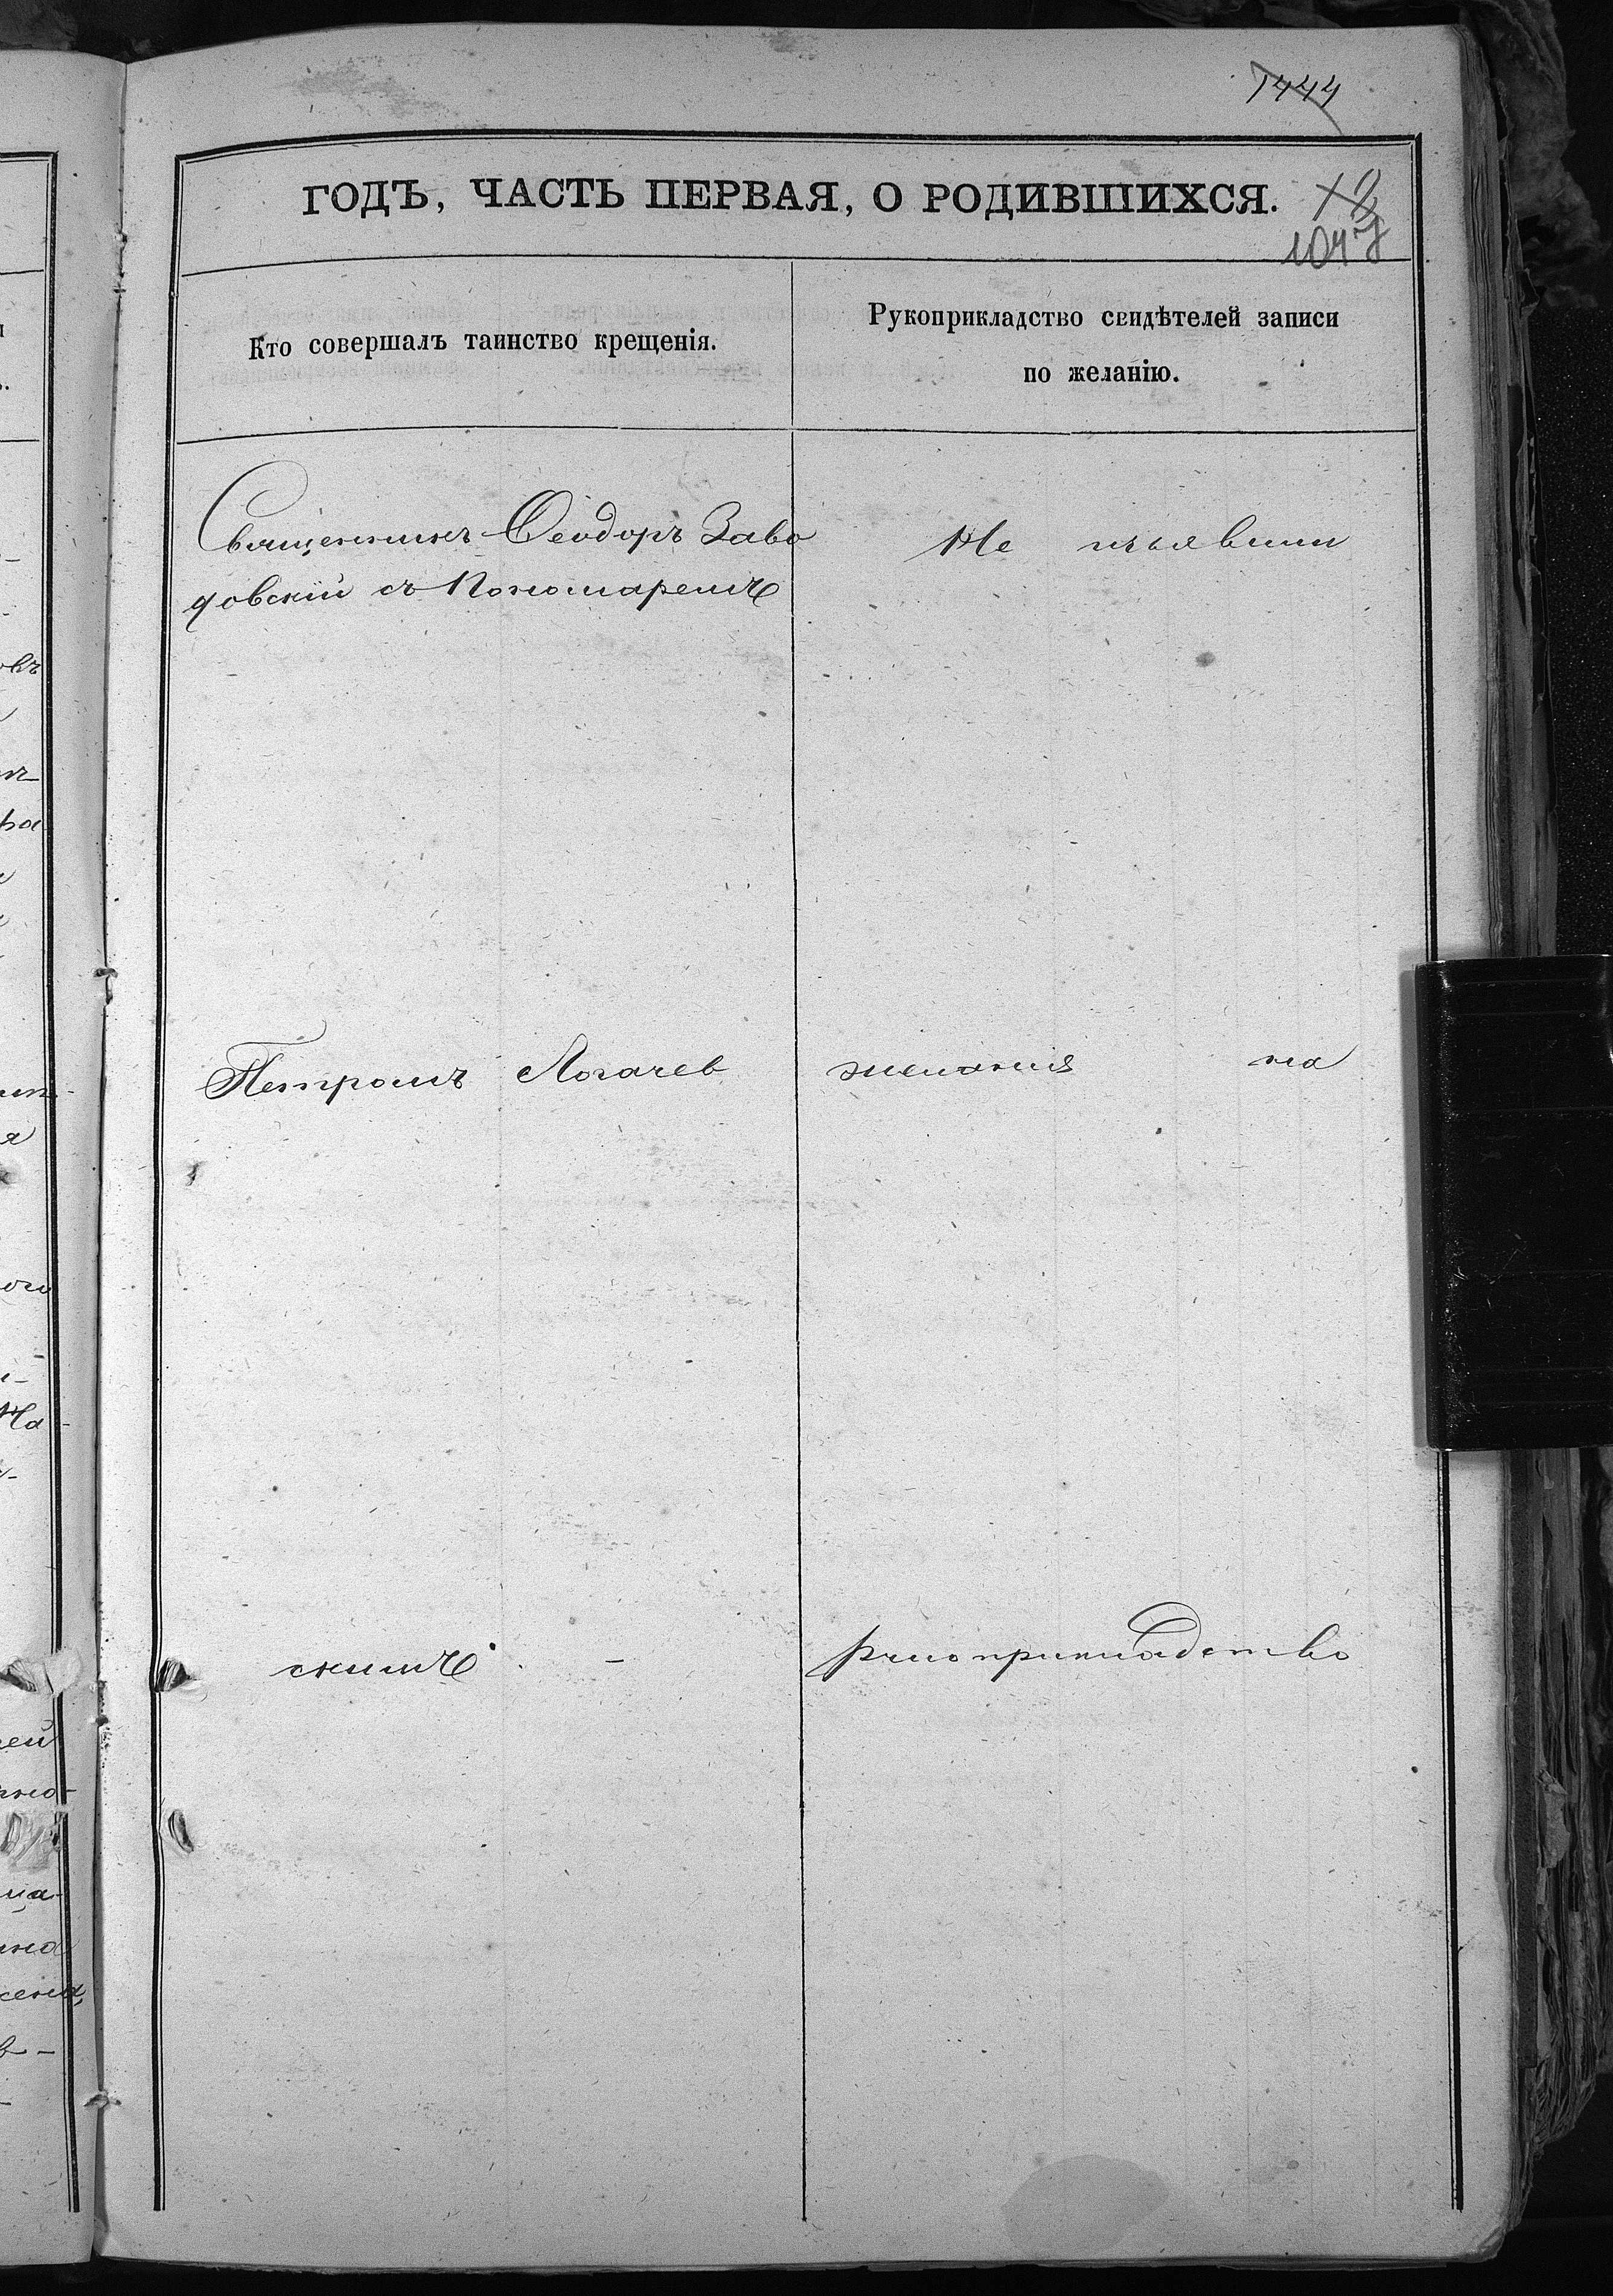 1444
ГОДЪ, ЧАСТЬ ПЕРВАЯ, О РОДИВШИХСЯ.
104
Кто совершалъ таинство крещенія.
Рукоприкладство свидѣтелей записи
по желанію.
Священникъ Ѳеодоръ Заво
довскій съ Пономаремъ
Не изъявили
Петромъ Логачев
желанія на
скимъ. -
рукоприкладство